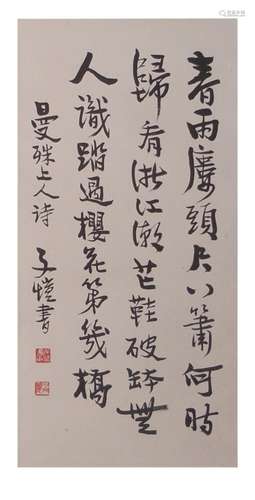 春雨廔頭尺八簫何時
歸看浙江潮芒鞋破鉢無
人識踏過櫻花第幾橋
曼殊上人诗 子愷書